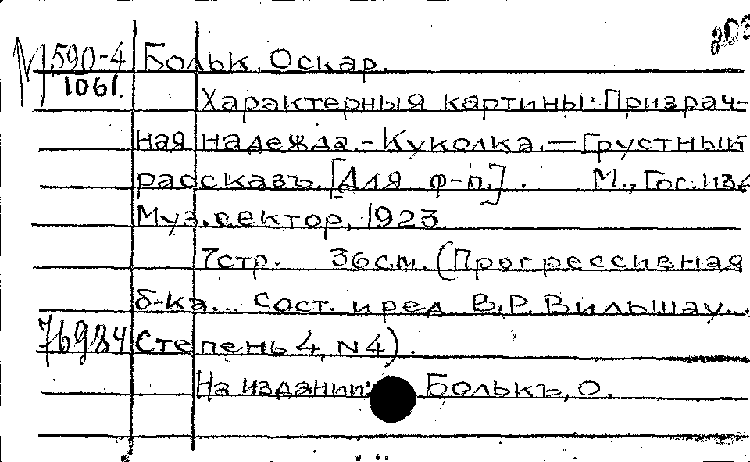 М 590-4 Больк, Оскар.
1061.
Характерныя картины: Призрач-
ная надежда. - Куколка. — Грустный
рассказъ. [Для ф-п.]. М., Гос. изд.
Муз. сектор, 1923
7 стр. 36 см. (Прогрессивная
б-ка... Сост. и ред. В. Р. Вильшау...
76984 Степень 4, N4).
На издании: Болькъ, О.